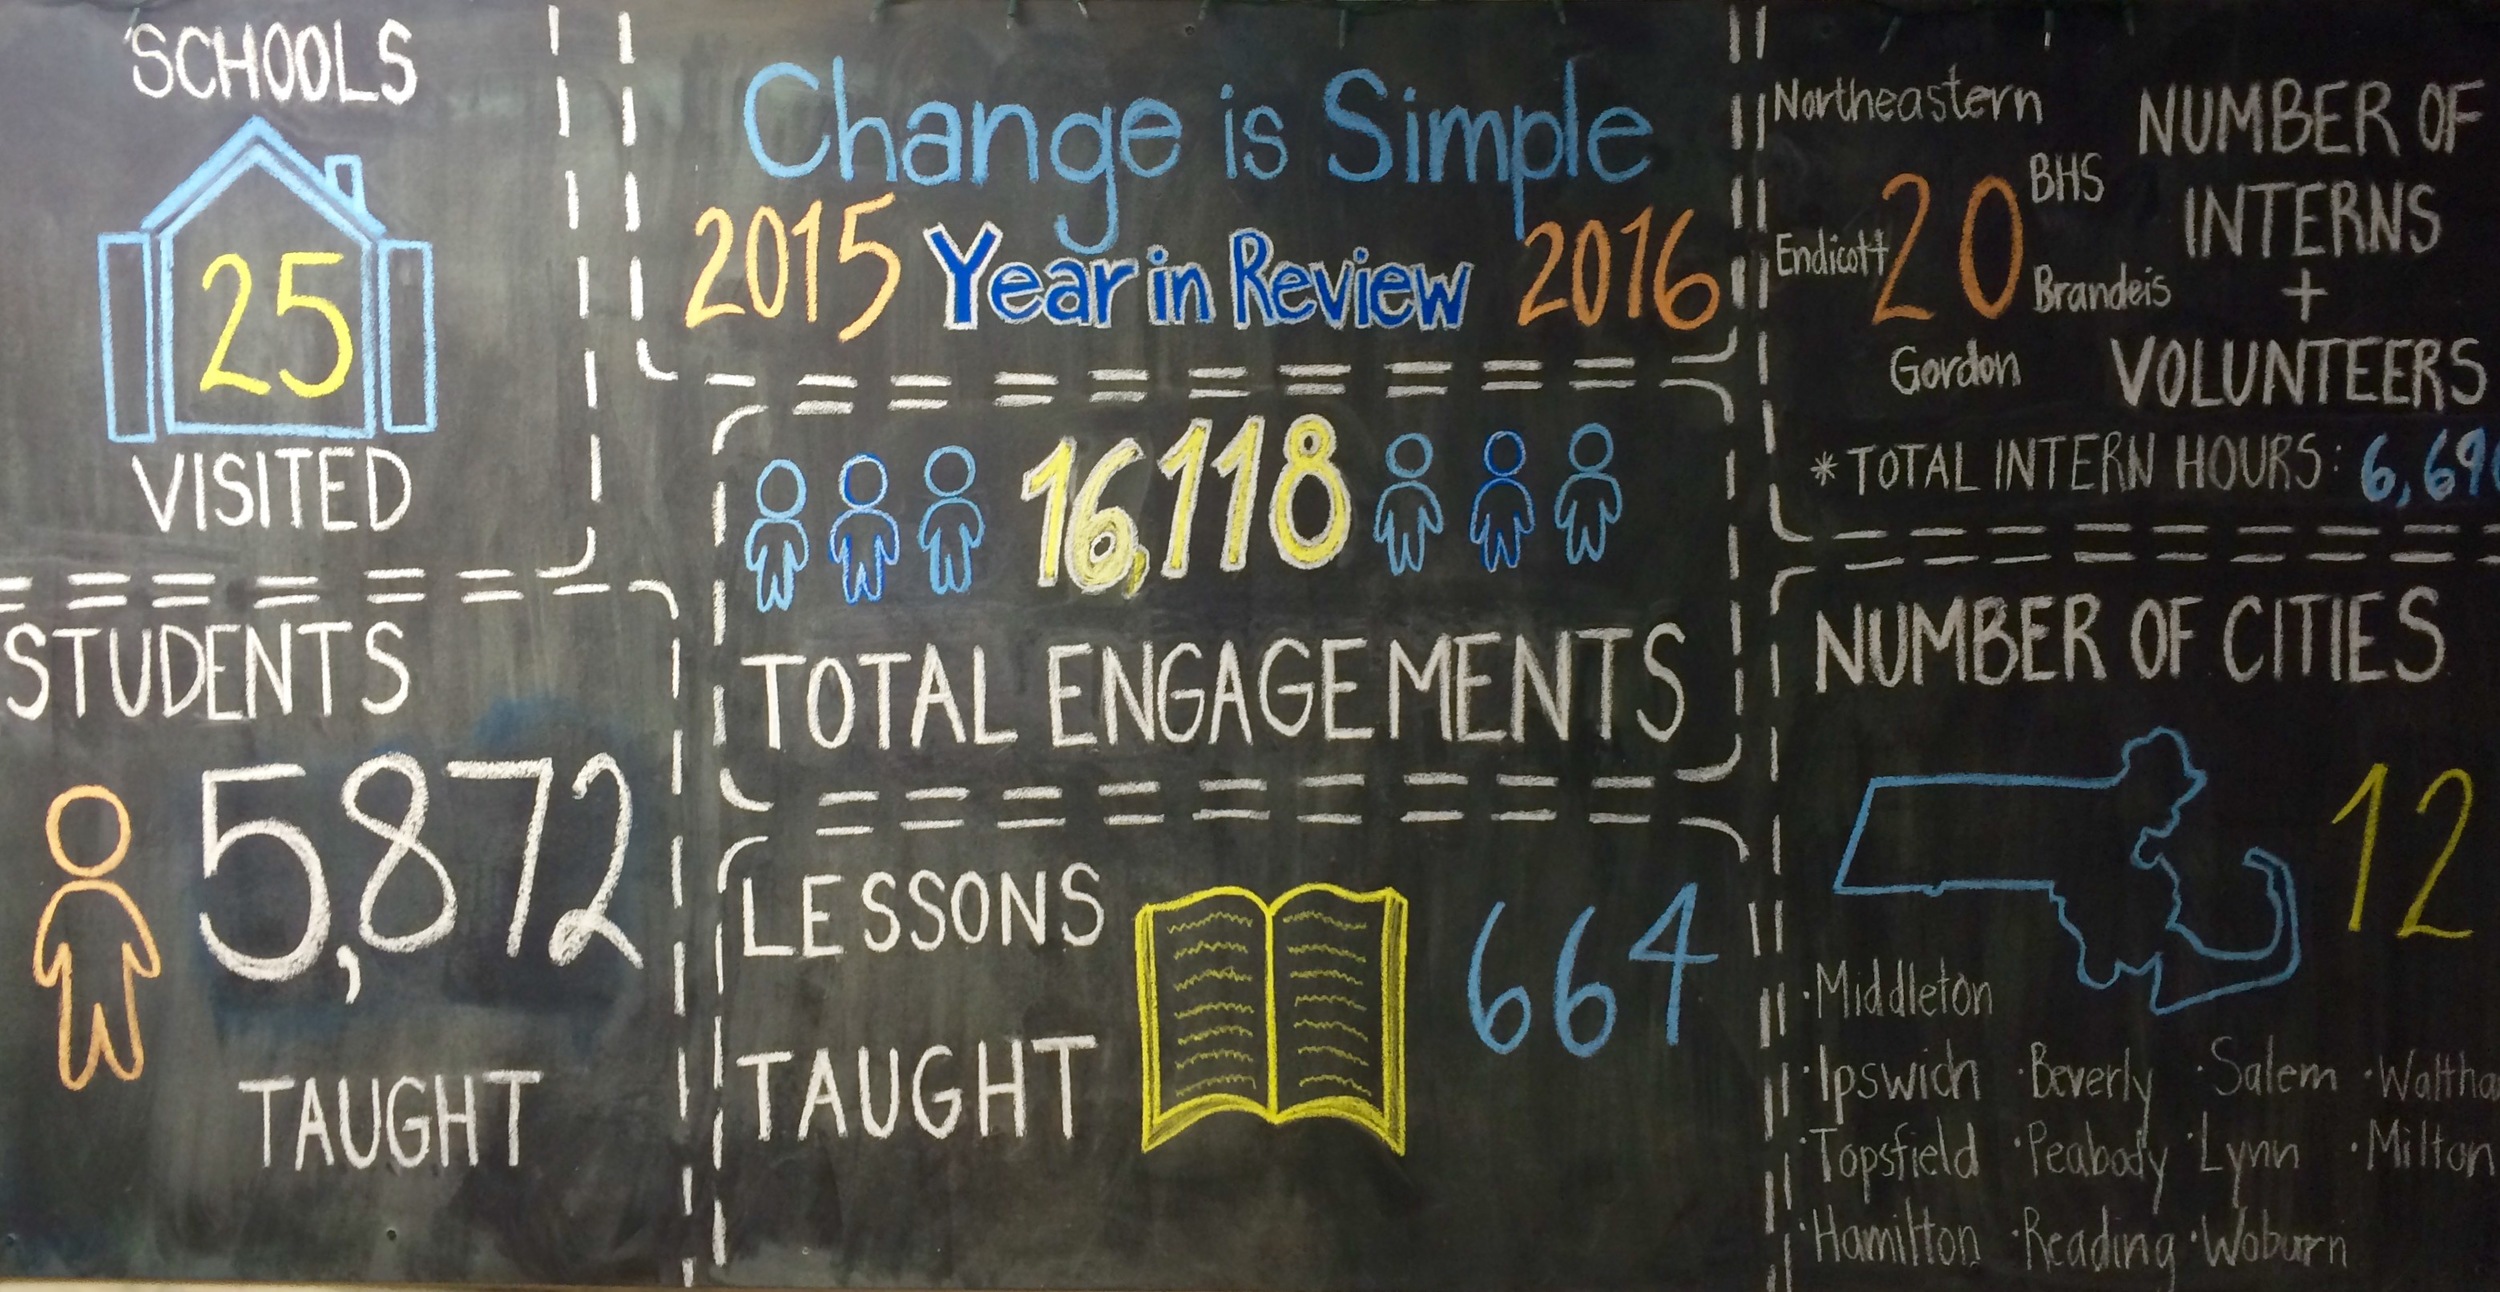 SCHOOLS
25
VISITED
STUDENTS
5,872
TAUGHT
Change is Simple
2015 Year in Review 2016
16,118
TOTAL ENGAGEMENTS
LESSONS
TAUGHT
664
Northeastern
BHS
Endicott
20
Brandeis
Gordon
NUMBER OF
INTERNS
+
VOLUNTEERS
*TOTAL INTERN HOURS: 6,69
NUMBER OF CITIES
12
·Middleton
·Ipswich ·Beverly ·Salem ·Waltha
·Topsfield ·Peabody ·Lynn ·Milton
·Hamilton ·Reading ·Woburn